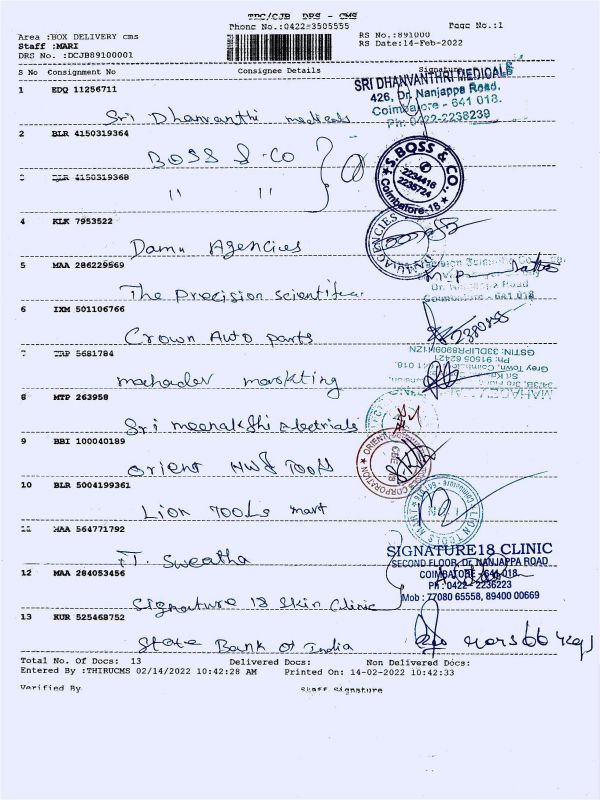 TPC/CJB DRS - CMS
Phone No.:0422-3505555
Page No.:1
Area :BOX DELIVERY cms
Staff :MARI
DRS No. :DCJB89100001
RS No.:891000
RS Date:14-Feb-2022
S No Consignment No Consignee Details Signature
1 EDQ 11256711
Sri Dhanvanthi medicals
SRI DHANVANTHRI MEDICALS
426, Dr. Nanjappa Road,
Coimbatore - 641 018.
Ph: 0422-2238239
2 BLR 4150319364
BOSS & CO
S.BOSS & CO.
2234416
2235724
Coimbatore-18
BLR 4150319368
" "
4 KLK 7953522
Damu Agencies
AGENCIES
5 MAA 286229569
The Precision scientific
Coimbatore - 641 018
6 IXM 501106766
Crown Auto parts
TRP 5681784
mahadev markting
GSTIN: 33DLIPR8909M1ZN
8 MTP 263958
Sri meenakshi electrials
9 BBI 100040189
Orient HW& Tools
ORIENT
CORPORATION
10 BLR 5004199361
Lion Tools mart
LION TOOLS MART
11 MAA 564771792
T. Sweatha
SIGNATURE18 CLINIC
SECOND FLOOR, Dr. NANJAPPA ROAD
COIMBATORE - 641 018
PH : 0422 - 2236223
Mob : 77080 65558, 89400 00669
12 MAA 284053456
Signature 18 skin clinic
13 KUR 525468752
State Bank of India
Total No. Of Docs: 13 Delivered Docs: Non Delivered Docs:
Entered By :THIRUCMS 02/14/2022 10:42:28 AM Printed On: 14-02-2022 10:42:33
Verified By Staff Signature